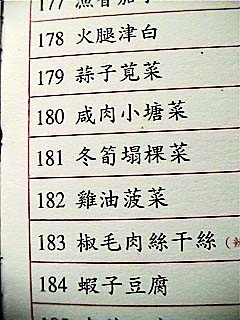 177 魚香茄子
178 火腿津白
179 蒜子莧菜
180 咸肉小塘菜
181 冬筍塌棵菜
182 雞油菠菜
183 椒毛肉絲干絲（辣
184 蝦子豆腐